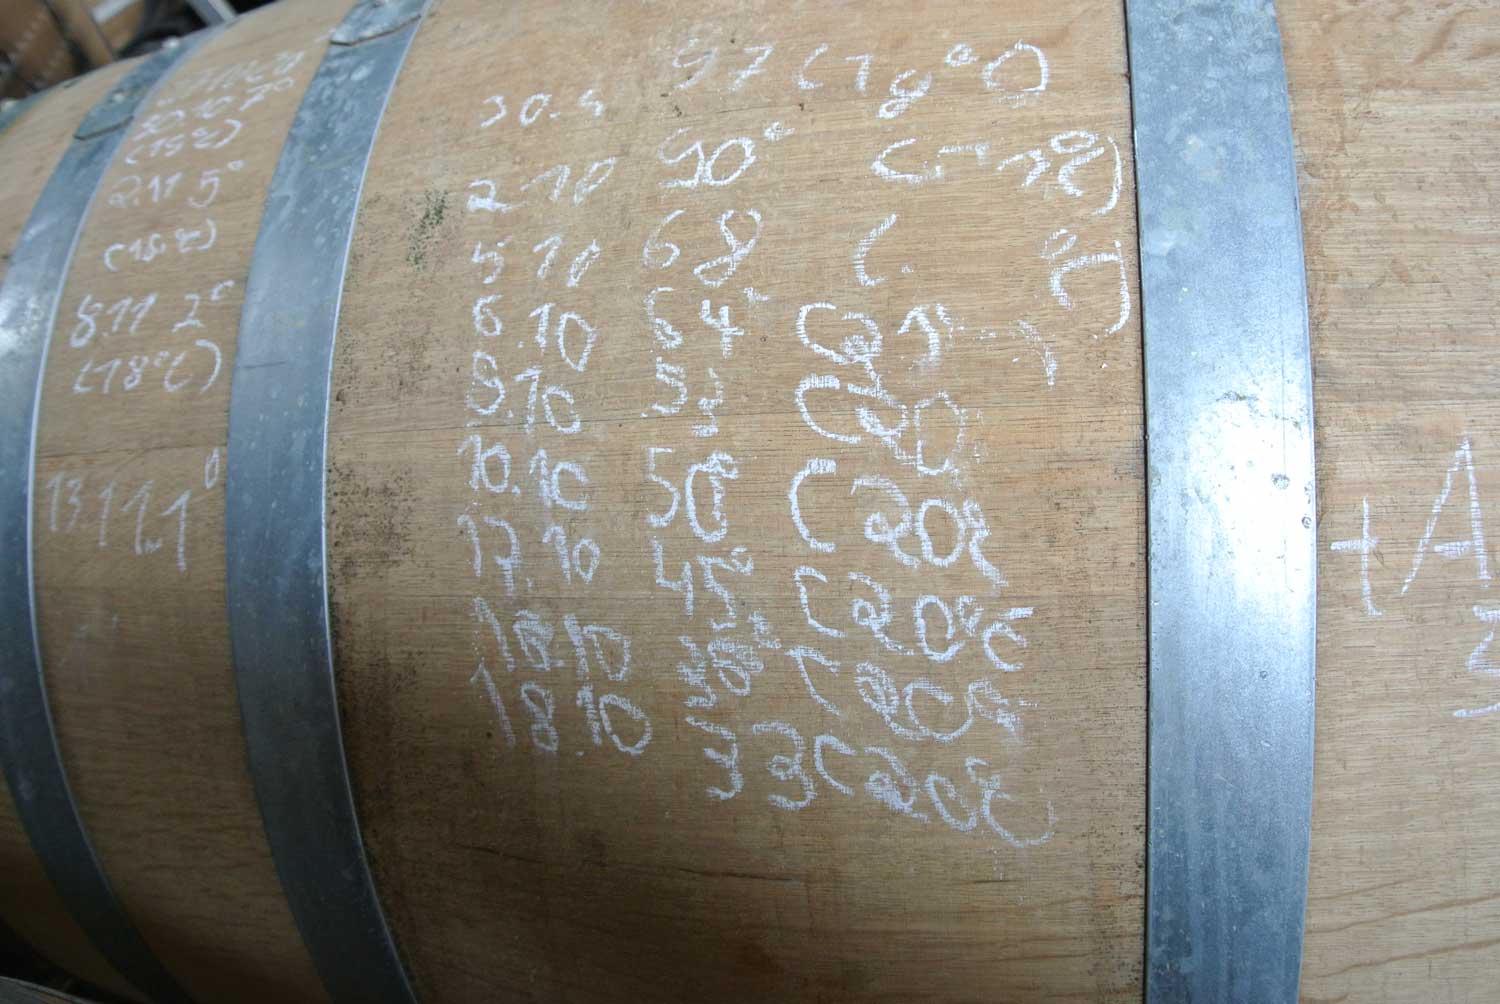 30.9 97 (18°C)
2.10 90° ( °C)
5.10 68 ( °C)
6.10 64° (21°
8.10 53 (20
10.10 50° (20°C
17.10 45° (20°C
18.10 38° (20°C
18.10 33 (20°C
30.10 7°
(19°C)
2.11 5°
(18°C)
8.11 2°
(18°C)
13.11 1°
+A
3